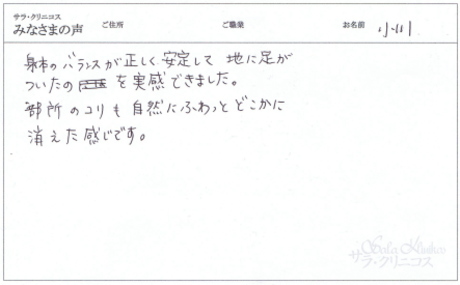 サラ・クリニコス
みなさまの声 ご住所 ご職業 お名前 小川
身体のバランスが正しく安定して 地に足が
ついたの を実感できました。
部所のコリも自然にふわっとどこかに
消えた感じです。
Sala Klinikos
サラ・クリニコス